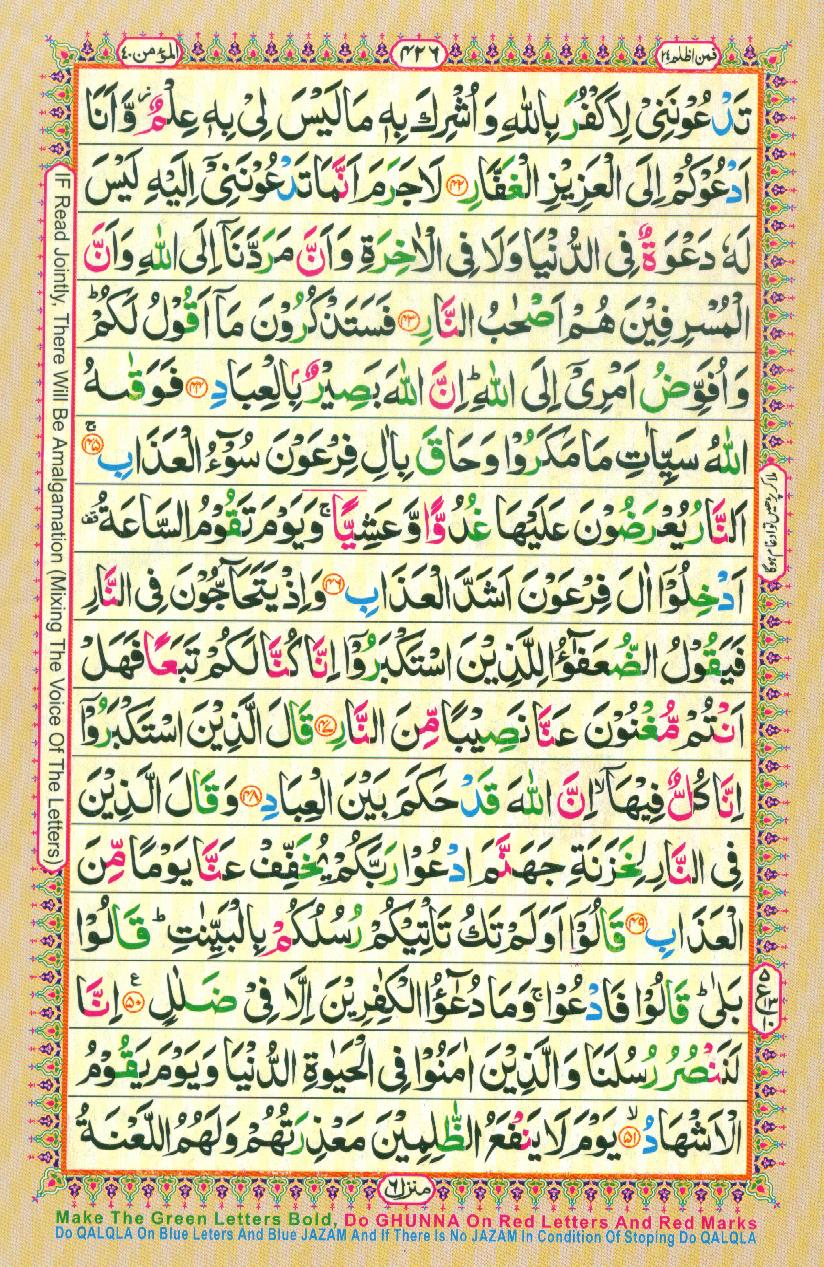 فمن اظلم ٢٤
٤٢٦
المؤمن ٤٠
تَدْعُوْنَنِیْ لِاَكْفُرَ بِاللّٰهِ وَ اُشْرِكَ بِهٖ مَا لَیْسَ لِیْ بِهٖ عِلْمٌ ؗ وَّ اَنَا
اَدْعُوْكُمْ اِلَى الْعَزِیْزِ الْغَفَّارِ ﴿۴۲﴾ لَا جَرَمَ اَنَّمَا تَدْعُوْنَنِیْۤ اِلَیْهِ لَیْسَ
لَهٗ دَعْوَةٌ فِی الدُّنْیَا وَ لَا فِی الْاٰخِرَةِ وَ اَنَّ مَرَدَّنَاۤ اِلَى اللّٰهِ وَ اَنَّ
الْمُسْرِفِیْنَ هُمْ اَصْحٰبُ النَّارِ ﴿۴۳﴾ فَسَتَذْكُرُوْنَ مَاۤ اَقُوْلُ لَكُمْ ؕ
وَ اُفَوِّضُ اَمْرِیْۤ اِلَى اللّٰهِ ؕ اِنَّ اللّٰهَ بَصِیْرٌۢ بِالْعِبَادِ ﴿۴۴﴾ فَوَقٰىهُ
اللّٰهُ سَیِّاٰتِ مَا مَكَرُوْا وَ حَاقَ بِاٰلِ فِرْعَوْنَ سُوْٓءُ الْعَذَابِ ﴿۴۵﴾ۚ
اَلنَّارُ یُعْرَضُوْنَ عَلَیْهَا غُدُوًّا وَّ عَشِیًّا ۚ وَ یَوْمَ تَقُوْمُ السَّاعَةُ ۫
اَدْخِلُوْۤا اٰلَ فِرْعَوْنَ اَشَدَّ الْعَذَابِ ﴿۴۶﴾ وَ اِذْ یَتَحَآجُّوْنَ فِی النَّارِ
فَیَقُوْلُ الضُّعَفٰٓؤُا لِلَّذِیْنَ اسْتَكْبَرُوْۤا اِنَّا كُنَّا لَكُمْ تَبَعًا فَهَلْ
اَنْتُمْ مُّغْنُوْنَ عَنَّا نَصِیْبًا مِّنَ النَّارِ ﴿۴۷﴾ قَالَ الَّذِیْنَ اسْتَكْبَرُوْۤا
اِنَّا كُلٌّ فِیْهَاۤ ۙ اِنَّ اللّٰهَ قَدْ حَكَمَ بَیْنَ الْعِبَادِ ﴿۴۸﴾ وَ قَالَ الَّذِیْنَ
فِی النَّارِ لِخَزَنَةِ جَهَنَّمَ ادْعُوْا رَبَّكُمْ یُخَفِّفْ عَنَّا یَوْمًا مِّنَ
الْعَذَابِ ﴿۴۹﴾ قَالُوْۤا اَوَ لَمْ تَكُ تَاْتِیْكُمْ رُسُلُكُمْ بِالْبَیِّنٰتِ ؕ قَالُوْا
بَلٰى ؕ قَالُوْا فَادْعُوْا ۚ وَ مَا دُعٰٓؤُا الْكٰفِرِیْنَ اِلَّا فِیْ ضَلٰلٍ ﴿۵۰﴾ اِنَّا
لَنَنْصُرُ رُسُلَنَا وَ الَّذِیْنَ اٰمَنُوْا فِی الْحَیٰوةِ الدُّنْیَا وَ یَوْمَ یَقُوْمُ
الْاَشْهَادُ ﴿۵۱﴾ۙ یَوْمَ لَا یَنْفَعُ الظّٰلِمِیْنَ مَعْذِرَتُهُمْ وَ لَهُمُ اللَّعْنَةُ
منزل ٦
IF Read Jointly, There Will Be Amalgamation (Mixing The Voice Of The Letters)
Make The Green Letters Bold, Do GHUNNA On Red Letters And Red Marks
Do QALQLA On Blue Leters And Blue JAZAM And If There Is No JAZAM In Condition Of Stoping Do QALQLA